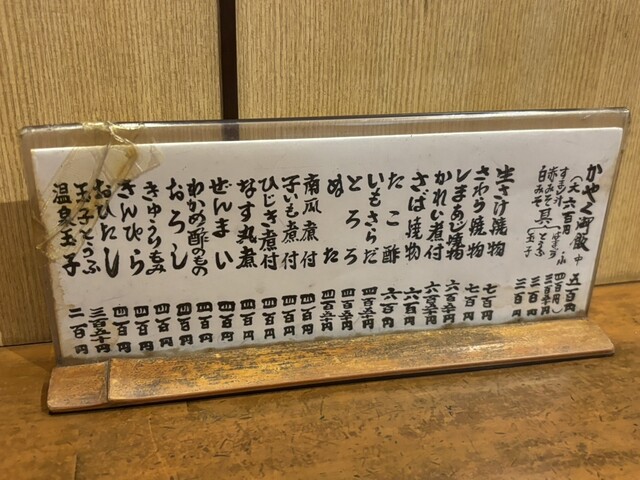 かやく御飯 中 五百円
(大 六百円)
すまし汁 四百円
赤みそ 三百五十円
白みそ 三百円
具 とうふ 玉子
生さけ焼物 七百円
さわら焼物 七百円
しまあじ焼物 六百五十円
かれい煮付 六百円
さば焼物 六百円
たこ酢 六百円
いもさらだ 四百五十円
とろろ 四百五十円
ぬた 四百五十円
南瓜煮付 四百円
子いも煮付 四百円
ひじき煮付 四百円
なす丸煮 四百円
ぜんまい 四百円
わかめ酢のもの 四百円
おろし 四百円
きゅうりもみ 四百円
きんぴら 四百円
おひたし 四百円
玉子とうふ 三百五十円
温泉玉子 二百円